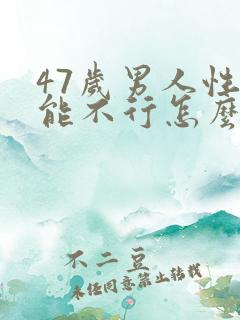 47歲男人性
能不行怎麼
不二豆
未经同意禁止转载